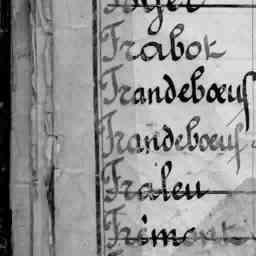 Frabot
Frandebœuf
Frandebœuf
Fraleu
Frémont